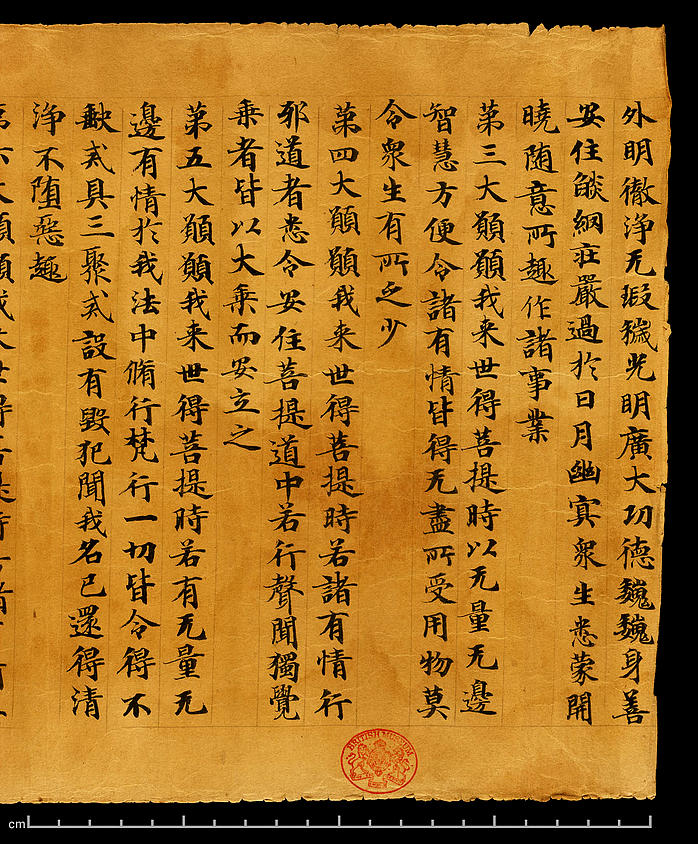 外明徹浄无瑕穢光明廣大功德巍巍身善
安住燄網莊嚴過於日月幽冥衆生悉蒙開
曉随意所趣作諸事業
第三大願願我来世得菩提時以无量无邊
智慧方便令諸有情皆得无盡所受用物莫
令衆生有所乏少
第四大願願我来世得菩提時若諸有情行
邪道者悉令安住菩提道中若行聲聞獨覺
乗者皆以大乗而安立之
第五大願願我来世得菩提時若有无量无
邊有情於我法中脩行梵行一切皆令得不
缺戒具三聚戒設有毀犯聞我名已還得清
浄不堕惡趣
第六大願願我来世得菩提時若諸
BRITISH MUSEUM
cm